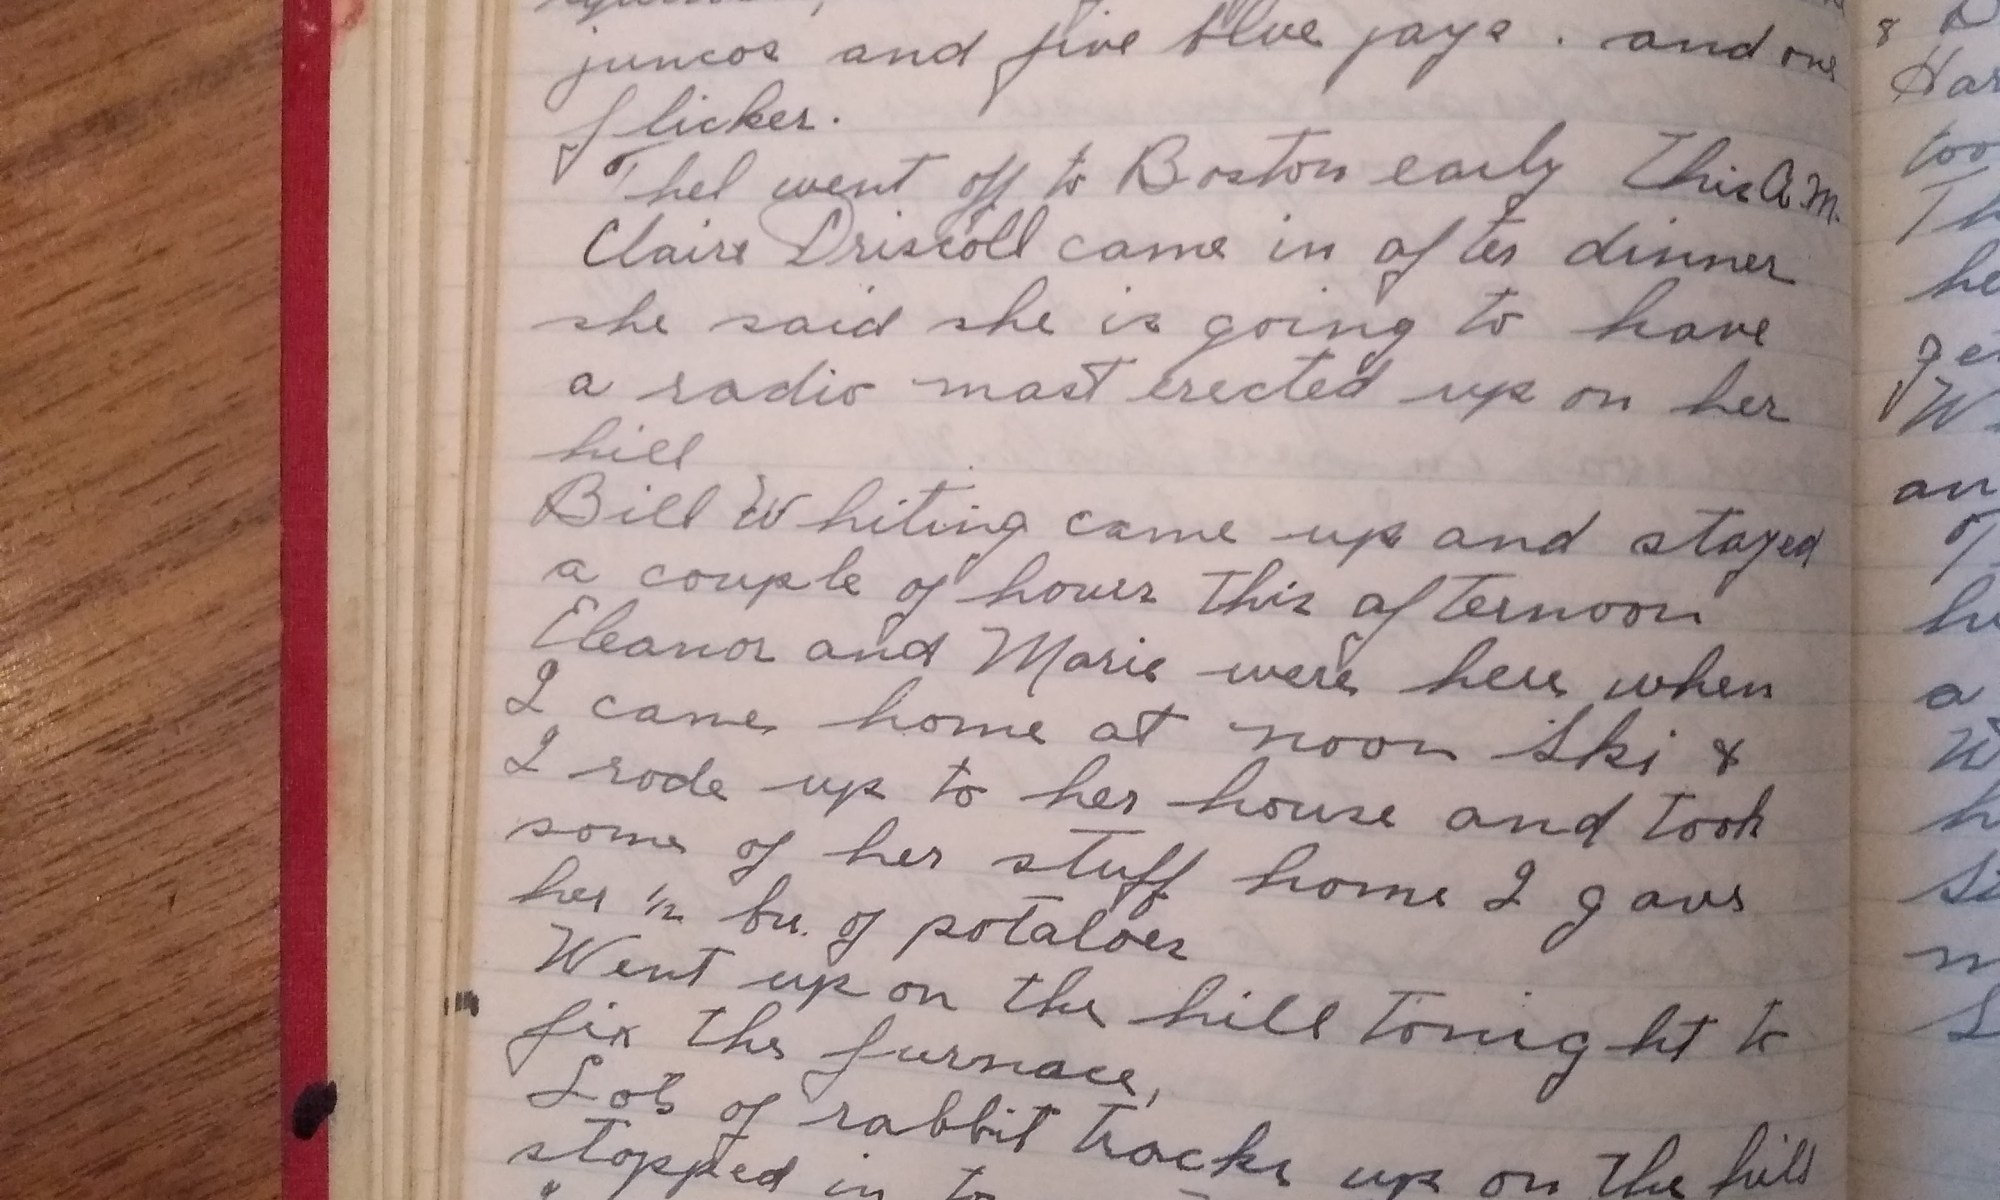 juncos and five blue jays. and one
flicker.
Thel went off to Boston early this A.M.
Claire Driscoll came in after dinner
she said she is going to have
a radio mast erected up on her
hill
Bill Whiting came up and stayed
a couple of hours this afternoon
Eleanor and Marie were here when
I came home at noon Ski &
I rode up to her house and took
some of her stuff home I gave
her 1/2 bu. of potatoes
Went up on the hill tonight to
fix the furnace,
Lots of rabbit tracks up on the hill
stopped in to
8
Har
too
Th
he
get
W
an
T
hu
a
W
h
m